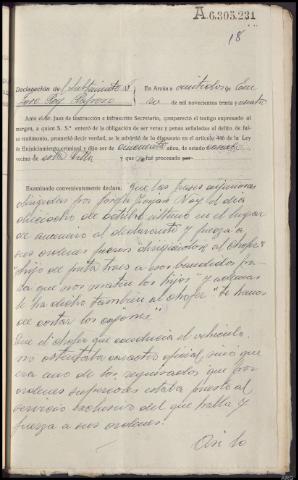 A.6.303.231
18
Declaración del
En Arzúa a veintiocho de Ene
ro de mil novecientos treinta y cuatro
Ante el Sr. Juez de instrucción e infrascrito Secretario, compareció el testigo expresado al
margen, a quien S. S.ª enteró de la obligación de ser veraz y penas señaladas al delito de fal-
so testimonio, prometió decir verdad, se le advirtió de lo dispuesto en el artículo 446 de la Ley
de Enjuiciamiento criminal y dijo ser de cincuenta años, de estado casado
vecino de esta villa y que no fué procesado por
Examinado convenientemente declara: Que las frases injuriosas
dirigidas por el día
de octubre último en el lugar
de al declarante y fuerza a
sus ordenes fueron dirigidas al chofer
"hijo de puta traes a esos bandidos pa-
ra que nos maten los hijos" y además
le ha dicho también al chofer "te hemos
de cortar los cojones".
Que el chofer que conducía el vehículo
no ostentaba caracter oficial, sino que
era uno de los que por
ordenes superiores estaba puesto al
servicio exclusivo del que habla y
fuerza a sus ordenes.
Así lo